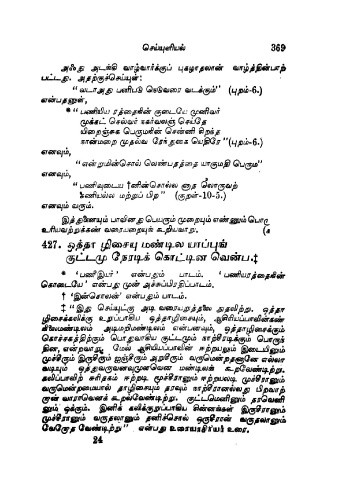 செய்யுளியல் 369
அஃது அடங்கி வாழ்வார்க்குப் புகழாதலான் வாழ்த்தின்பாற்
பட்டது. அதற்குச்செய்யுள்:
“வடாஅது பனிபடு நெடுவரை வடக்கும்” (புறம்-6.)
என்பதனுள்,
* “பணியிய ரத்தைநின் குடையே முனிவர்
முக்கட் செல்வர் நகர்வலஞ் செய்தே
யிறைஞ்சுக பெருமநின் சென்னி சிறந்த
நான்மறை முதல்வ ரேந்துகை யெதிரே” (புறம்-6.)
எனவும்,
“என்றுமின்சொல் லெண்பதத்தை யாகுமதி பெரும”
எனவும்,
“பணிவுடைய †னின்சொல்ல னாத லொருவற்
கணியல்ல மற்றுப் பிற” (குறள்-10-5.)
எனவும் வரும்.
இத்துணையும் பாவினது பெயரும் முறையும் எண்ணும் பொரு
உரியவற்றுக்கண் வரையறையுங் கூறியவாறு. (௬
427. ஒத்தா ழிசையு மண்டில யாப்புங்
குட்டமு நேரடிக் கொட்டின வென்ப.‡
* ‘பணீஇயர்’ என்பதும் பாடம். ‘பணியரத்தைநின்
கொடையே’ என்பது முன் அச்சுப்பிரதிப்பாடம்.
† ‘இன்சொலன்’ என்பதும் பாடம்.
‡ “இது செய்யுட்கு அடி வரையறுத்தலை நுதலிற்று. ஒத்தா
ழிசைக்கலிக்கு உறுப்பாகிய ஒத்தாழிசையும், ஆசிரியப்பாவின்கண்
நிலைமண்டிலம் அடிமறிமண்டிலம் என்பனவும், ஒத்தாழிசைக்கும்
கொச்சகத்திற்கும் பொதுவாகிய குட்டமும் நாற்சீரடிக்கும் பொருந்
தின, என்றவாறு. மேல் ஆசிரியப்பாவின் ஈற்றயலும் இடையினும்
முச்சீரும் இருசீரும் ஐஞ்சீரும் அறுசீரும் வருமென்றதனானே எல்லா
வடியும் ஒத்துவருவனவுமுளவென மண்டிலங் கூறவேண்டிற்று.
கலிப்பாவிற் சுரிதகம் ஈற்றடி முச்சீரானும் ஈற்றயலடி முச்சீரானும்
வருமென்றமையால் தாழிசையும் தரவும் நாற்சீரானல்லது பிறவாற்
றான் வாராவெனக் கூறல்வேண்டிற்று. குட்டமெனினும் தரவெனி
னும் ஒக்கும். இனிக் கலிக்குறுப்பாகிய சின்னங்கள் இருசீரானும்
முச்சீரானும் வருதலானும் தனிச்சொல் ஒருசீரான் வருதலானும்
வேறோத வேண்டிற்று” என்பது உரையாசிரியர் உரை.
24